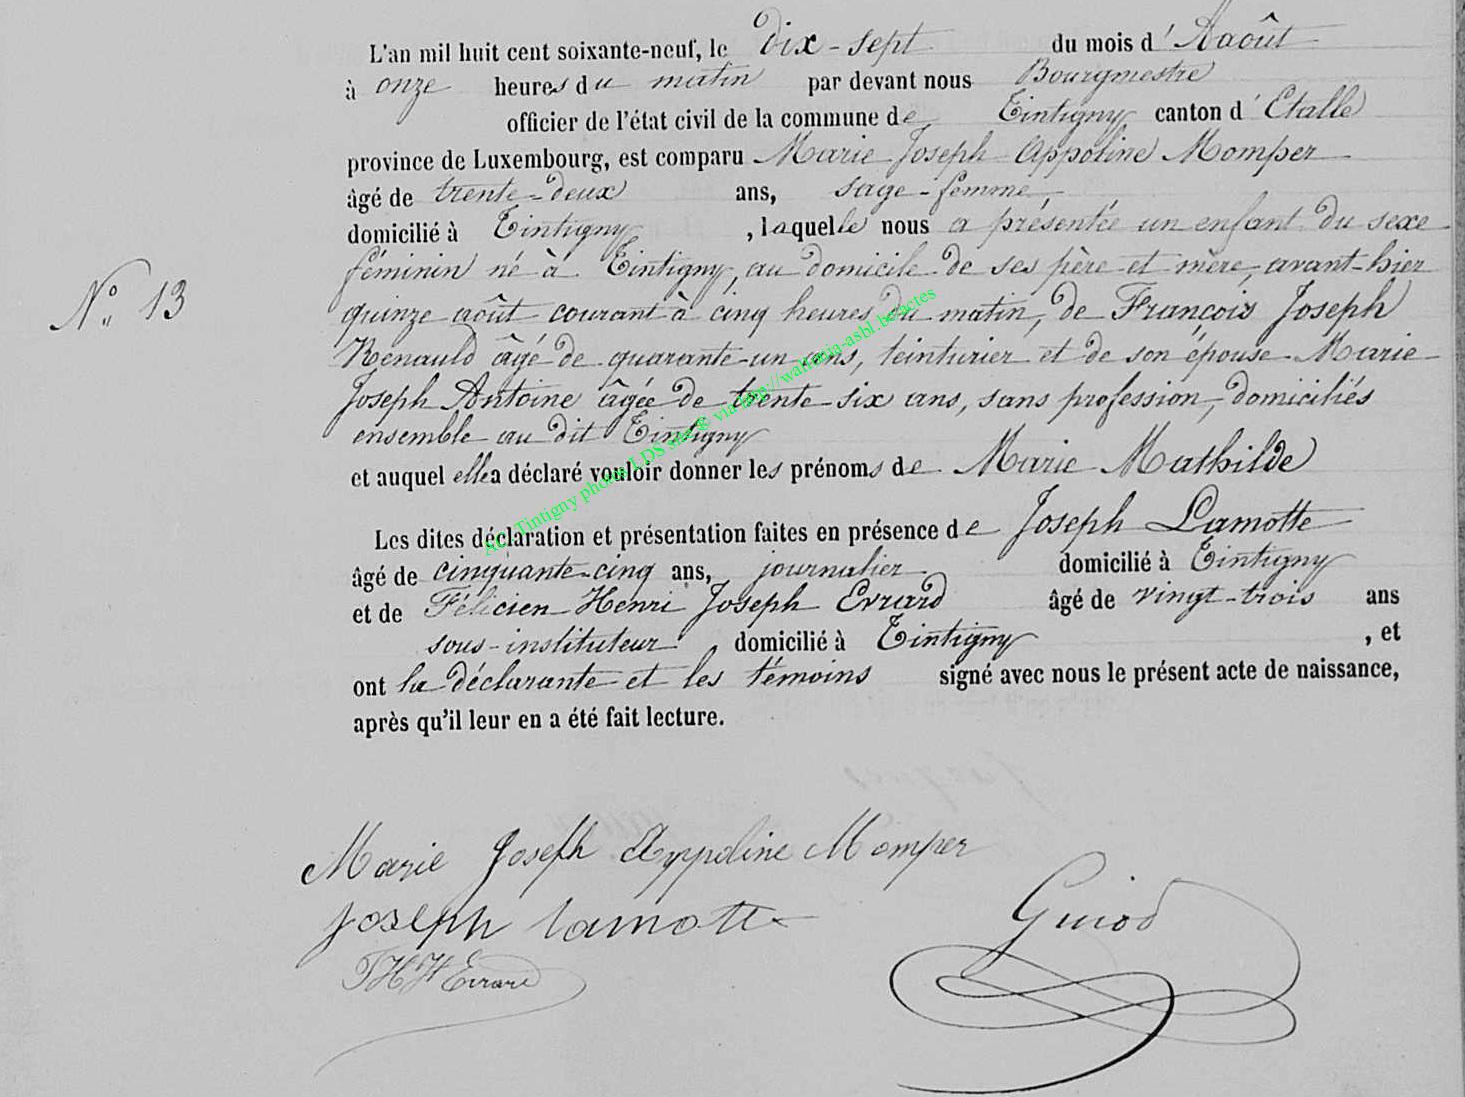 L'an mil huit cent soixante-neuf, le dix-sept du mois d'Aaoût
à onze heures du matin par devant nous Bourgmestre
officier de l'état civil de la commune de Tintigny canton d'Etalle
province de Luxembourg, est comparu Marie Joseph Appoline Momper
âgé de trente-deux ans, sage-femme
domicilié à Tintigny, laquelle nous a présentée un enfant du sexe
féminin né à Tintigny, au domicile de ses père et mère, avant-hier
N° 13
quinze août courant à cinq heures du matin, de François Joseph
Renauld âgé de quarante-un ans, teinturier et de son épouse Marie
Joseph Antoine âgée de trente-six ans, sans profession, domiciliés
ensemble au dit Tintigny
et auquel elle a déclaré vouloir donner les prénoms de Marie Mathilde
Les dites déclaration et présentation faites en présence de Joseph Lamotte
âgé de cinquante-cinq ans, journalier domicilié à Tintigny
et de Félicien Henri Joseph Evrard âgé de vingt-trois ans
sous-instituteur domicilié à Tintigny, et
ont la déclarante et les témoins signé avec nous le présent acte de naissance,
après qu'il leur en a été fait lecture.
Marie Joseph Appoline Momper
Joseph lamotte
Guiod
Evrard
Tintigny photos LDS via http://wallonia-asbl.be/actes